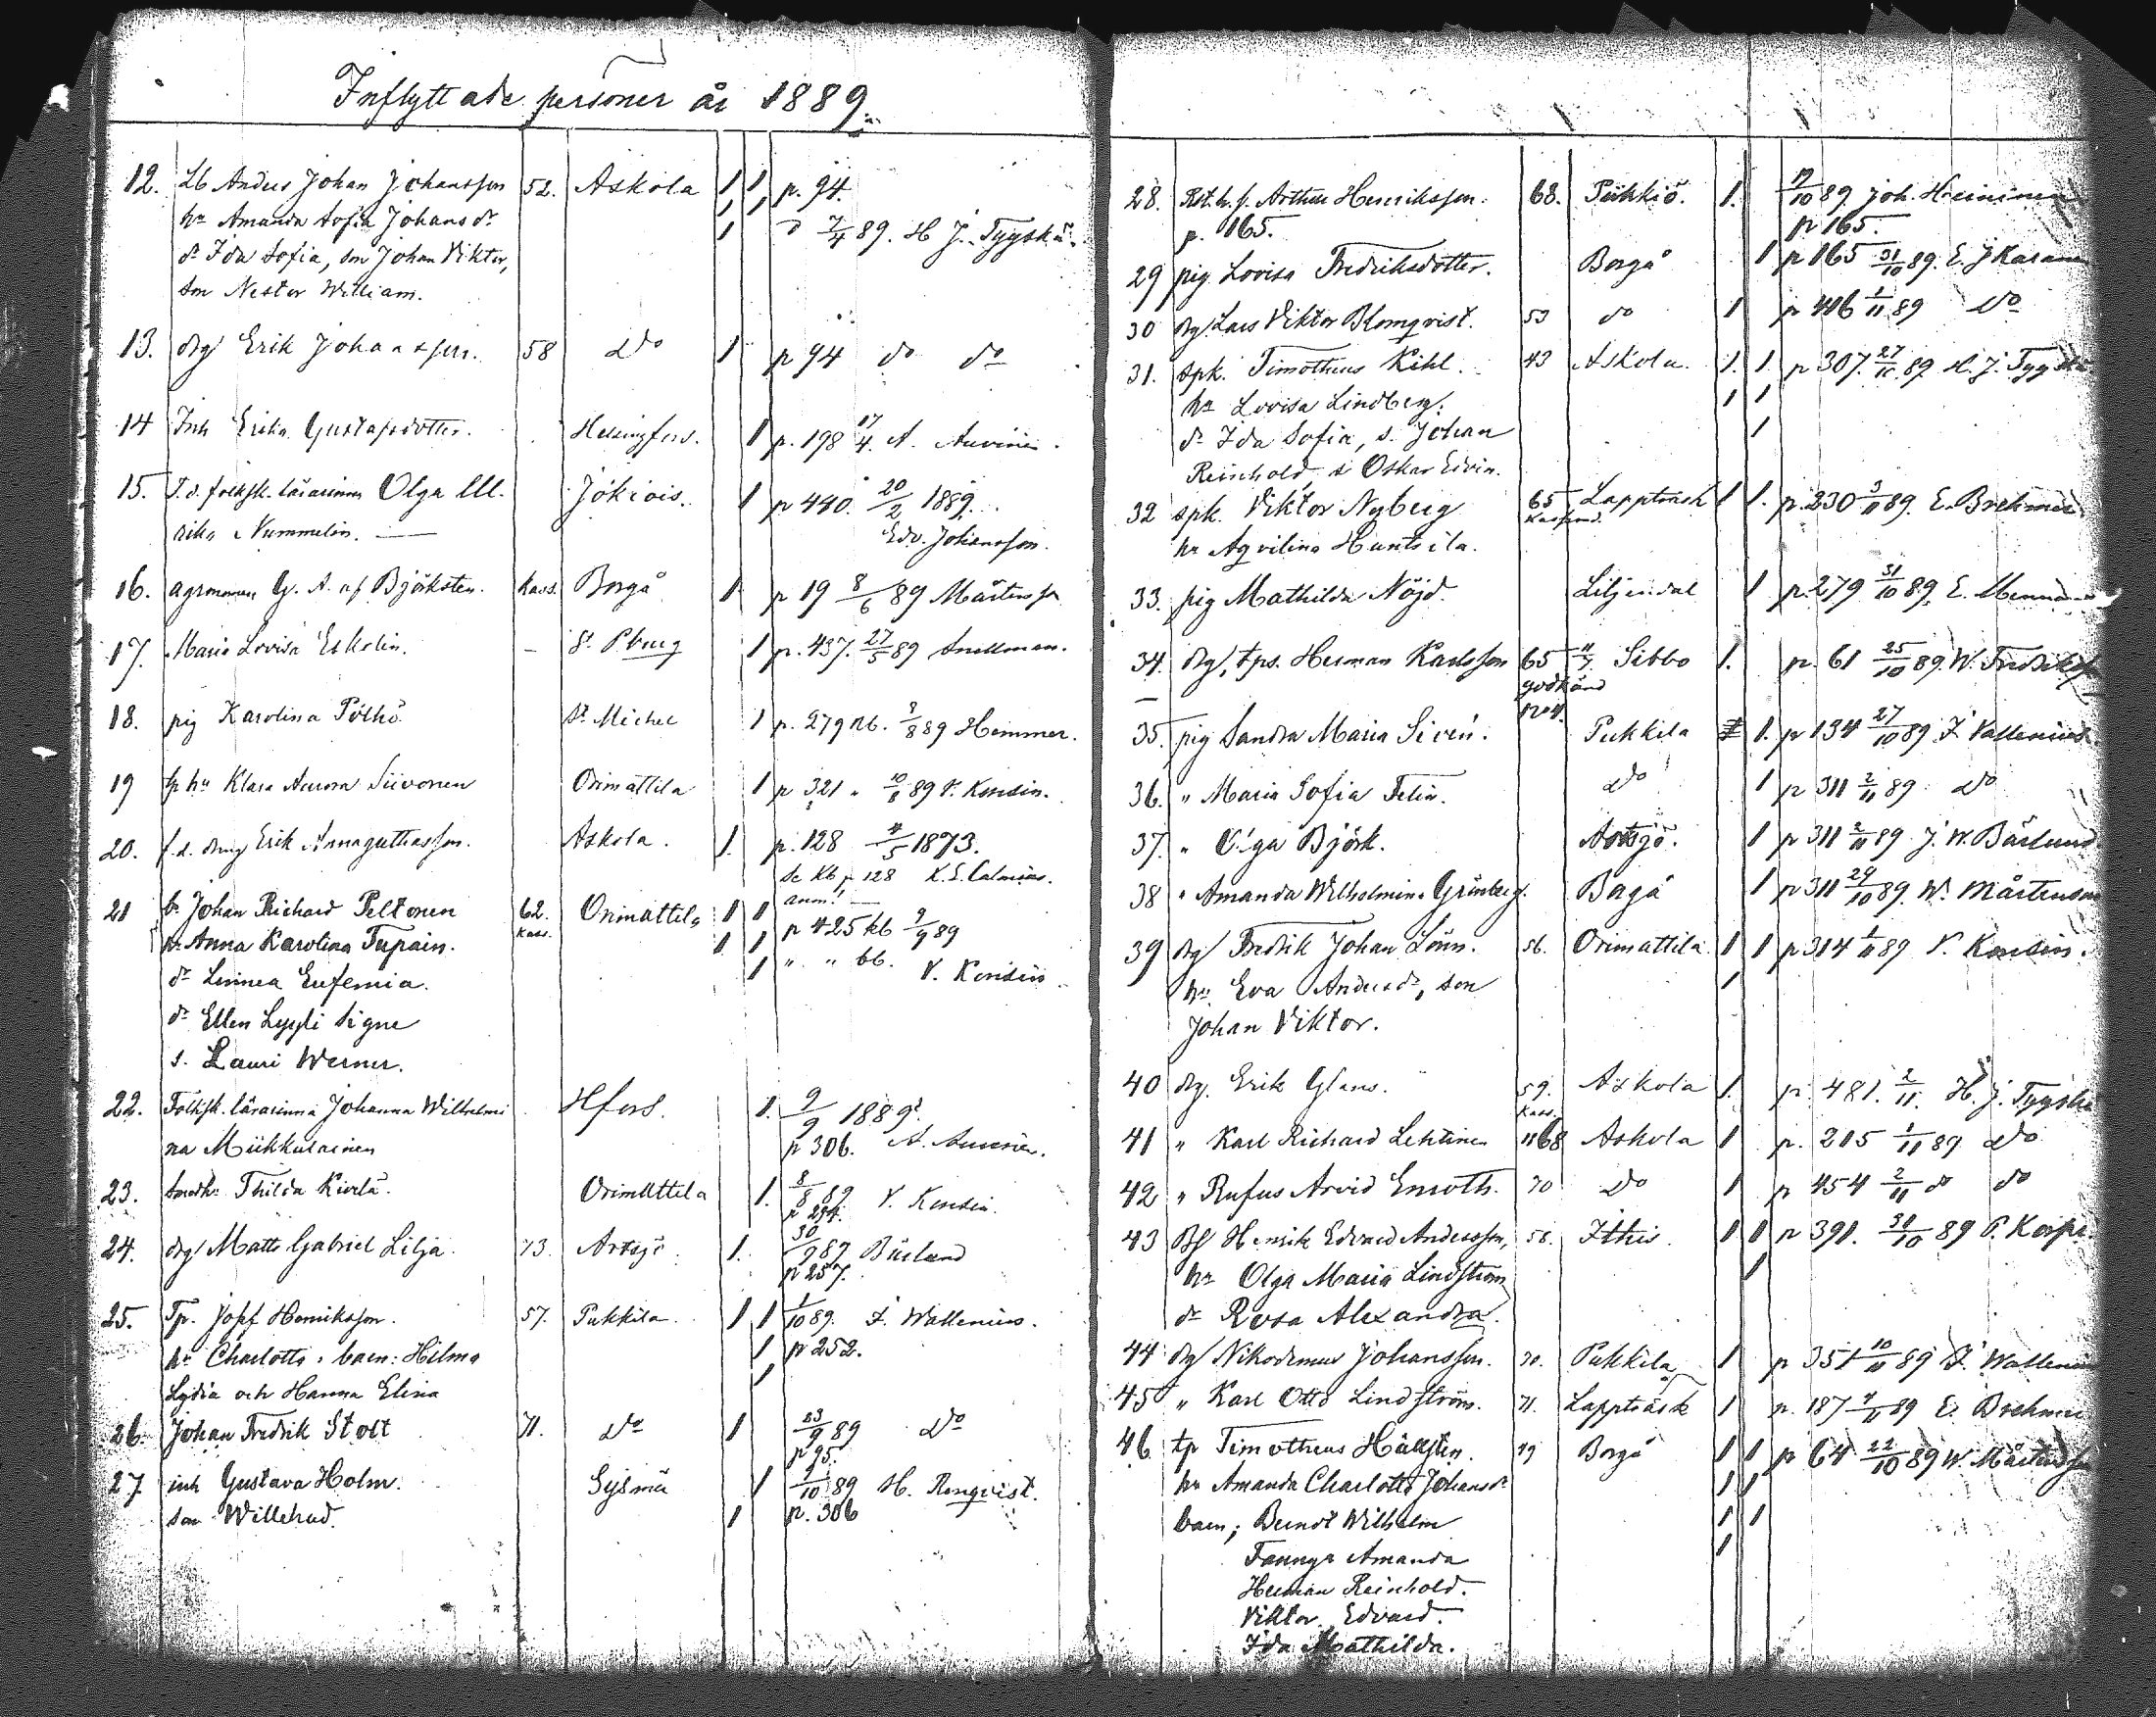 Inflyttade personer år 1889.
12. Lb Anders Johan Johansson 52. Askola 1 1 p. 94.
hu Amanda Sofia Johansdr 7/4 89. H J. Tyyskä.
dr Ida Sofia, son Johan Viktor,
son Nestor William.
13. drg Erik Johansson. 58 do 1 p 94 do do
14 Inh Erika Gustafsdotter. Helsingfors. 1 p. 198 17/4. A. Auvinen.
15. T.d. folksk. lärarinna Olga Ul. Jokiois. 1 p 440. 20/2 1889.
rika Nummelin. Edv. Johansson.
16. agronomen G. A. af Björksten. kass. Borgå 1 p 19 8/6 89 Mårtensson
17. Maria Lovisa Eskolin. - St P.burg 1 p. 437. 27/5 89 Snellman.
18. pig Karolina Pölhö St Michel 1 p. 279 nb. 3/8 89 Hemmer.
19 tp hu Klara Aurora Siivonen Orimattila 1 p 321 " 10/8 89 V. Konsin.
20. f.d. drng Erik Annaguthasson. Askola. 1. p. 128 4/5 1873.
se Kb p 128 K. E. Calonius.
anm.
21 b. Johan Richard Peltonen 62. kass. Orimattila 1 1 p 425 kb 9/9 89
hu Anna Karolina Tupain. 1 1 " " bb.
dr Linnea Eufemia. 1 V. Konsin
dr Ellen Lyyli Signe
s. Lauri Werner.
22. Folksk. lärarinna Johanna Wilhelmi H.fors. 1. 9/9 1889.
na Miikkulainen p 306. A. Auvinen.
23. smedhu Thilda Kierlä. Orimattila 1. 8/8 89 V. Konsin.
p 294.
24. drg Matts Gabriel Lilja. 73. Artsjö 1. 30/9 89 Bärlund
p 257.
25. Tp. Josef Henriksson. 57. Pukkila. 1 1 1/10 89. F. Wallenius.
hu Charlotta, barn: Hilma 1 p 252.
Lydia och Hanna Elina 1
26. Johan Fredrik Stolt 71. do 1 23/9 89 do
p 95.
27 inh Gustava Holm. Sysmä 1 9/10 89 H. Renqvist.
son Willehad. 1 p. 306
28. Rst. h. s. Arthur Henriksson. 68. Piikkiö. 1. 17/10 89 Joh. Heininen
p. 165. p 165.
29 pig Lovisa Fredriksdotter. Borgå 1 p 165 31/10 89. E. J Karann
30 drg Lars Viktor Blomqvist. 53 do 1 p 446 1/11 89 do
31. spk. Timotheus Kihl. 43 Askola. 1. 1. p 307. 27/10. 89. H. J. Tyyskä
hu Lovisa Lindberg. 1 1
dr Ida Sofia, s. Johan 1
Reinhold, s Oskar Edvin.
32 spk. Viktor Nyberg 65 Lappträsk 1 1. p. 230 3/11 89. E. Brehmer.
hu Aqvilina Huntsila.
33. pig Mathilda Nöjd. Liljendal 1 p. 279 31/10 89. E.
34. drg, tps. Herman Karlsson 65 11/7. Sibbo 1. p. 61 25/10 89. W. Fredriksson
godkänd
no 4.
35. pig Sandra Maria Sirén. Pukkila 1. p 134 27/10 89 F. Vallenius.
36. " Maria Sofia Felin. do 1 p 311 2/11 89 do
37. " Olga Björk. Artsjö. 1 p 311 2/11 89 J. W. Bärlund
38 " Amanda Wilhelmina Grönberg. Bogå 1 p 311 29/10 89. W. Mårtenson
39 drg Fredrik Johan Lönn. 56. Orimattila. 1 1 p 314 1/11 89 V. Konsin.
hu Eva Andersdr, son 1
Johan Viktor.
40 drg. Erik Glans. 59. Askola 1. p. 481. 2/11. H. J. Tyyskä
kass.
41 " Karl Richard Lehtinen 68 Askola 1 p. 215 1/11 89 do
42 " Rufus Arvid Enroth. 70 do 1 p 454 2/11 do do
43 Bf Henrik Edvard Andersson, 58. Itthis. 1 1 p 391. 30/10 89 P. Korpi.
hu Olga Maria Lindström 1
dr Rosa Alexandra.
44 drg Nikodemus Johansson. 70. Pukkila 1 p 351 10/11 89 F. Wallenius
45 " Karl Otto Lindström. 71. Lappträsk 1 p. 187 4/11 89 E. Brehmer
46 tp Timotheus Hällsten. 49 Borgå 1 1 p 64 22/10 89 W. Mårtensson
hu Amanda Charlotta Johansdr 1 1
barn; Berndt Wilhelm 1 1
Fannya Amanda 1
Herman Reinhold.
Viktor Edvard.
Ida Mathilda.